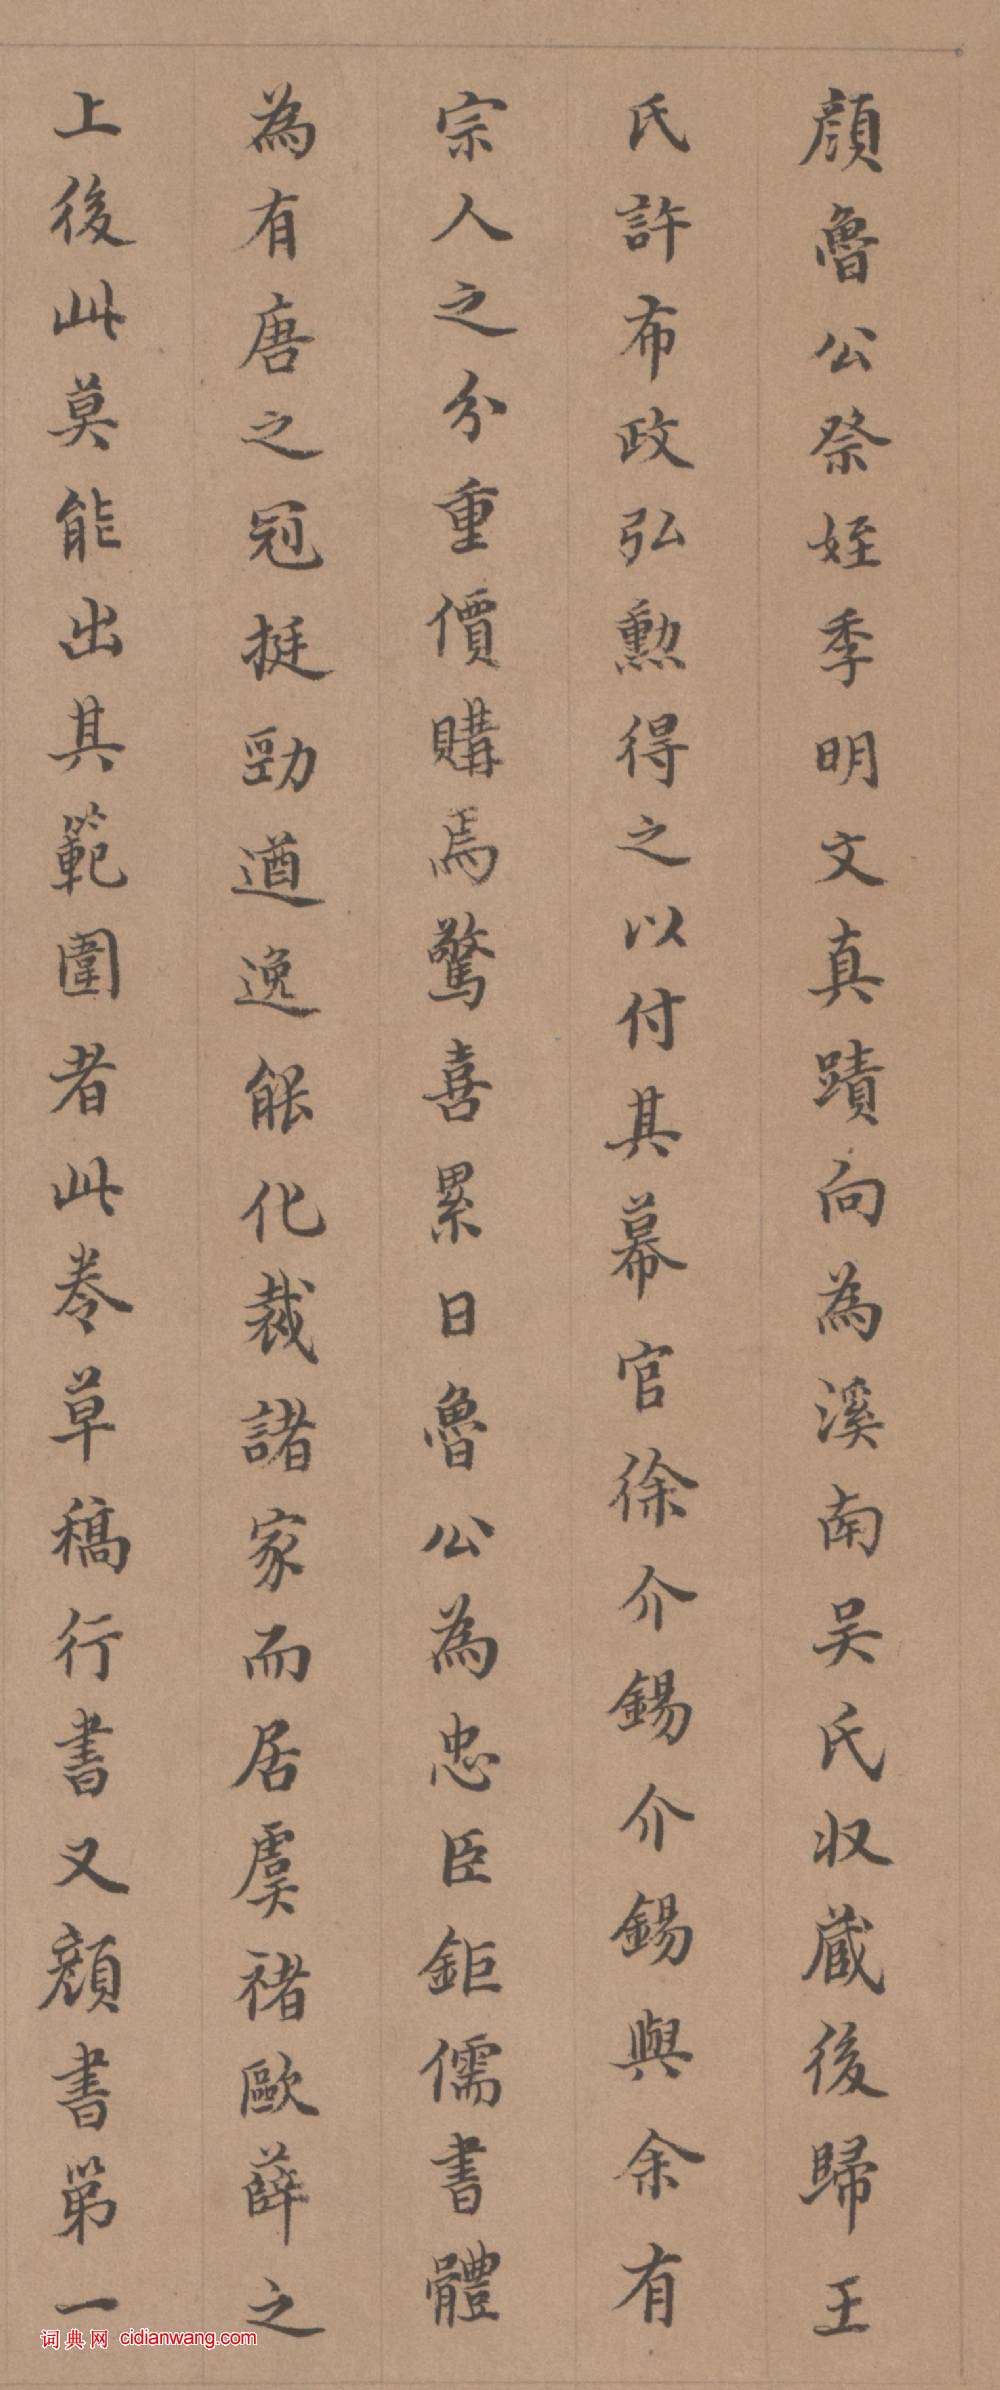 顔魯公祭姪季明文真蹟向為溪南吴氏収蔵後歸王
氏許布政弘勲得之以付其幕官徐介錫介錫與余有
宗人之分重價購焉驚喜累日魯公為忠臣鉅儒書體
為有唐之冠挺勁遒逸能化裁諸家而居虞褚歐薛之
上後此莫能出其範圍者此卷草稿行書又顔書第一
词典网 cidianwang.com